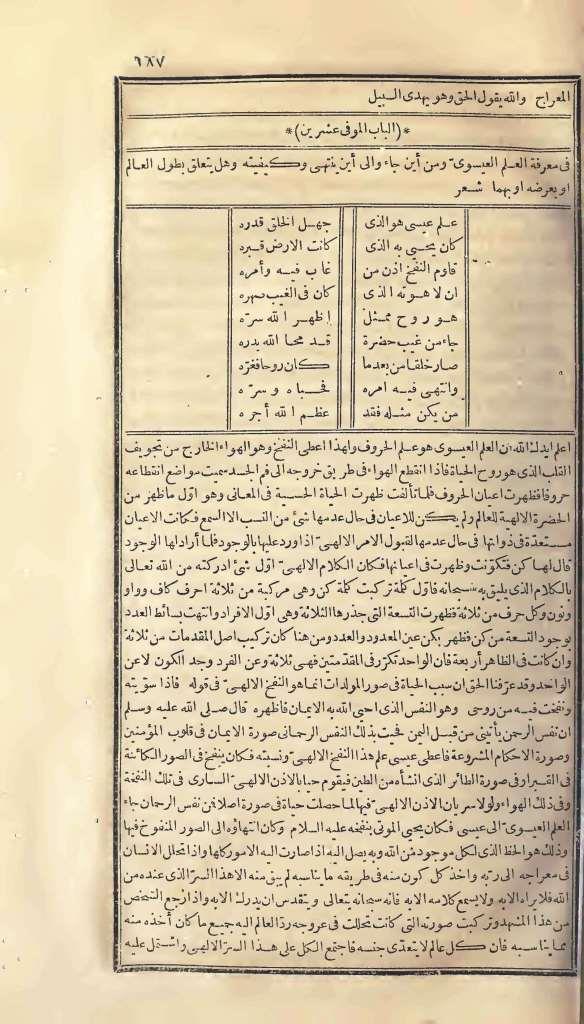 ١٨٧
المعراج والله يقول الحق وهو يهدى السبيل
*(الباب الموفى عشرين)*
فى معرفة العلم العيسوى ومن أين جاء والى أين ينتهى وكيفيته وهل يتعلق بطول العالم
او بعرضه او بهما شعر
علم عيسى هو الذى جهل الخلق قدره
كان يحيى به الذى كانت الارض قبره
قاوم النفخ اذن من غاب فيه وأمره
ان لاهوته الذى كان فى الغيب صهره
هو روح ممثل اظهر الله سره
جاء من غيب حضرة قد محا الله بدره
صار خلقا من بعد ما كان روحا فغره
وانتهى فيه امره فحباه وسره
من يكن مثله فقد عظم الله أجره
اعلم ايدك الله ان العلم العيسوى هو علم الحروف ولهذا اعطى النفخ وهو الهواء الخارج من تجويف
القلب الذى هو روح الحياة فاذا انقطع الهواء فى طريق خروجه الى فم الجسد سميت مواضع انقطاعه
حروفا فظهرت اعيان الحروف فلما تألفت ظهرت الحياة الحسية فى المعانى وهو اول ما ظهر من
الحضرة الالهية للعالم ولم يكن للاعيان فى حال عدمها شئ من النسب الا السمع فكانت الاعيان
مستعدة فى ذواتها فى حال عدمها لقبول الامر الالهى اذا ورد عليها بالوجود فلما أراد لها الوجود
قال لها كن فتكونت وظهرت فى اعيانها فكان الكلام الالهى اول شئ ادركته من الله تعالى
بالكلام الذى يليق به سبحانه فاول كلمة تركبت كلمة كن وهى مركبة من ثلاثة احرف كاف وواو
ونون وكل حرف من ثلاثة فظهرت التسعة التى جذرها الثلاثة وهى اول الافراد وانتهت بسائط العدد
بوجود التسعة من كن فظهر بكن عين المعدود والعدد ومن هنا كان تركيب اصل المقدمات من ثلاثة
وان كانت فى الظاهر أربعة فان الواحد تكرر فى المقدمتين فهى ثلاثة وعن الفرد وجد الكون لا عن
الواحد وقد عرفنا الحق ان سبب الحياة فى صور المولدات انما هو النفخ الالهى فى قوله فاذا سويته
ونفخت فيه من روحى وهو النفس الذى احيى الله به الايمان فاظهره قال صلى الله عليه وسلم
ان نفس الرحمن يأتينى من قبل اليمن فحيت بذلك النفس الرحمانى صورة الايمان فى قلوب المؤمنين
وصورة الاحكام المشروعة فاعطى عيسى علم هذا النفخ الالهى ونسبته فكان ينفخ فى الصور الكائنة
فى القبر او فى صورة الطائر الذى انشأه من الطين فيقوم حيا بالاذن الالهى السارى فى تلك النفخة
وفى ذلك الهواء ولولا سريان الاذن الالهى فيها لما حصلت حياة فى صورة اصلا فمن نفس الرحمان جاء
العلم العيسوى الى عيسى فكان يحيى الموتى بنفخه عليه السلام وكان انتهاؤه الى الصور المنفوخ فيها
وذلك هو الحظ الذى لكل موجود من الله وبه يصل اليه اذا صارت اليه الامور كلها واذا تحلل الانسان
فى معراجه الى ربه واخذ كل كون منه فى طريقه ما يناسبه لم يبق منه الا هذا السر الذى عنده من
الله فلا يراه الا به ولا يسمع كلامه الا به فانه سبحانه يتعالى ويتقدس ان يدرك الا به واذا رجع الشخص
من هذا المشهد وتركبت صورته التى كانت تحللت فى عروجه رد العالم اليه جميع ما كان أخذه منه
مما يناسبه فان كل عالم لا يتعدى جنسه فاجتمع الكل على هذا السر الالهى واشتمل عليه